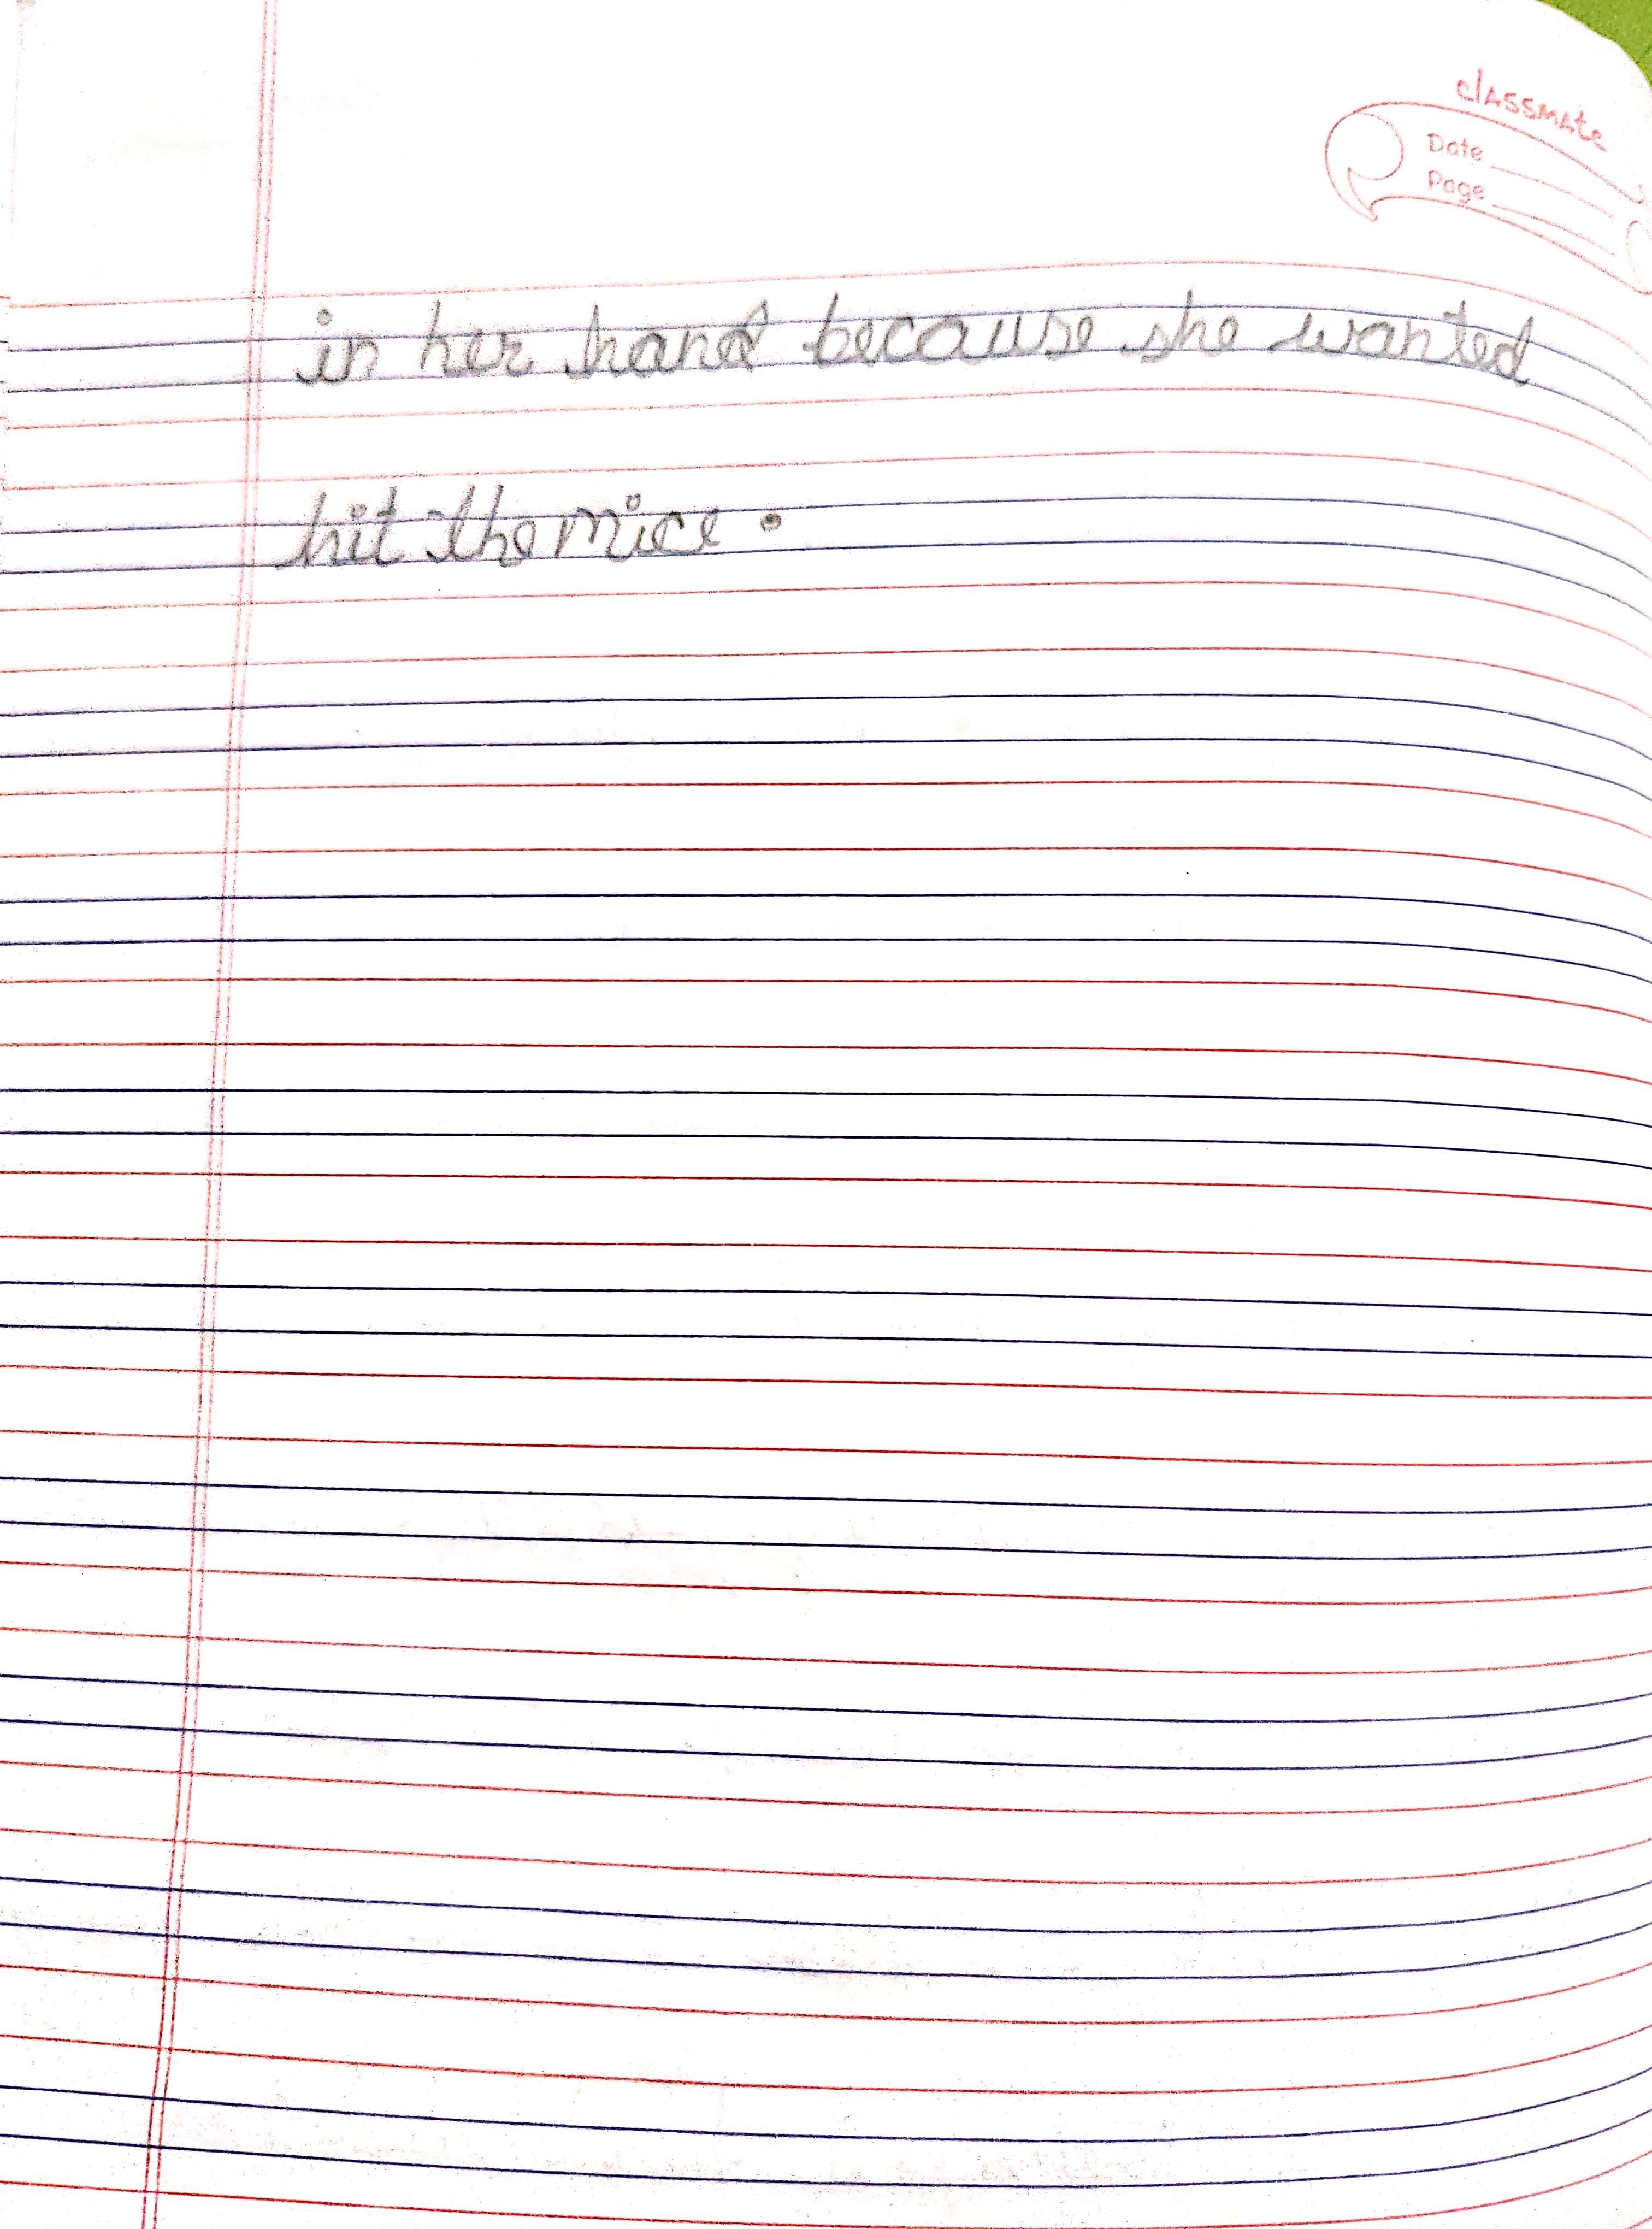 classmate
Date
Page
in her hand because she wanted
hit the mice.